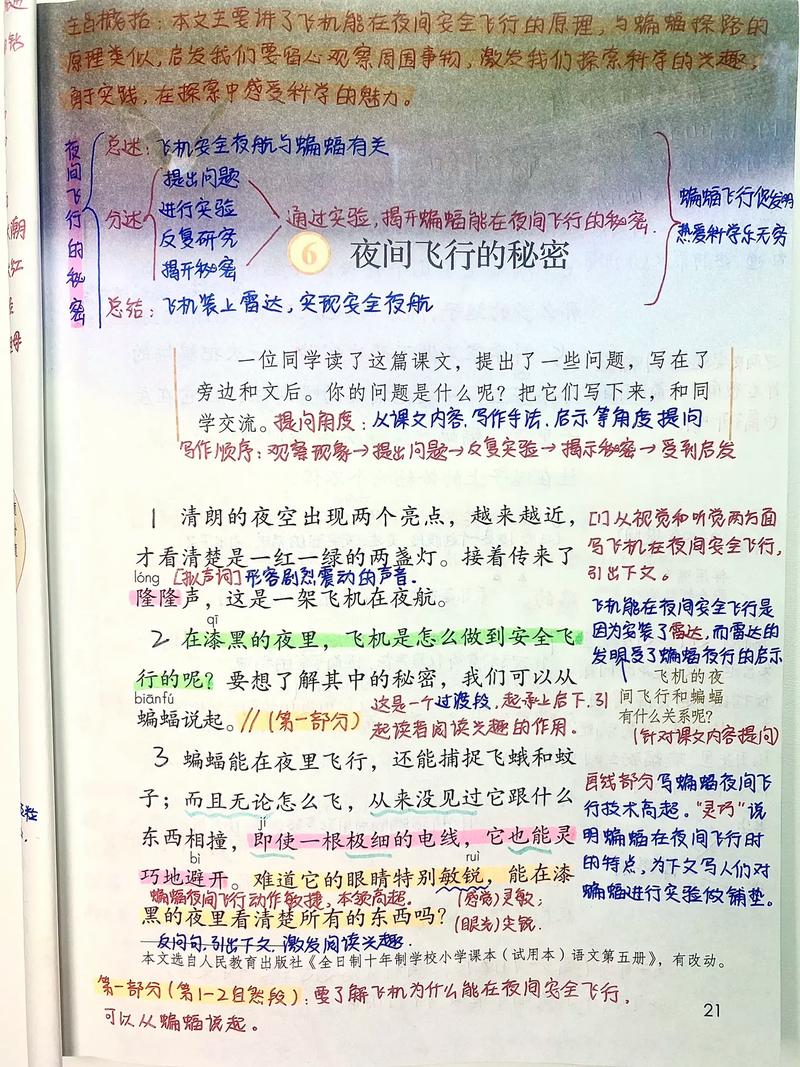 主旨概括：本文主要讲了飞机能在夜间安全飞行的原理，与蝙蝠探路的
原理类似，启发我们要留心观察周围事物，激发我们探索科学的兴趣，
于实践，在探索中感受科学的魅力。
夜间飞行的秘密
总述：飞机安全夜航与蝙蝠有关
分述
提出问题
进行实验
反复研究
揭开秘密
通过实验，揭开蝙蝠能在夜间飞行的秘密．
总结：飞机装上雷达，实现安全夜航
蝙蝠飞行促发明
热爱科学乐无穷
6 夜间飞行的秘密
一位同学读了这篇课文，提出了一些问题，写在了
旁边和文后。你的问题是什么呢？把它们写下来，和同
学交流。提问角度：从课文内容、写作手法、启示等角度提问
写作顺序：观察现象→提出问题→反复实验→揭示秘密→受到启发
1 清朗的夜空出现两个亮点，越来越近，
才看清楚是一红一绿的两盏灯。接着传来了
lóng [拟声词]形容剧烈震动的声音．
隆隆声，这是一架飞机在夜航。
qī
2 在漆黑的夜里，飞机是怎么做到安全飞
行的呢？要想了解其中的秘密，我们可以从
biānfú
蝙蝠说起。//(第一部分)
这是一个过渡段，起承上启下、引
起读者阅读兴趣的作用．
[1]从视觉和听觉两方面
写飞机在夜间安全飞行，
引出下文。
飞机能在夜间安全飞行是
因为安装了雷达，而雷达的
发明受了蝙蝠夜行的启示
飞机的夜
间飞行和蝙蝠
有什么关系呢？
(针对课文内容提问)
3 蝙蝠能在夜里飞行，还能捕捉飞蛾和蚊
子；而且无论怎么飞，从来没见过它跟什么
jí
东西相撞，即使一根极细的电线，它也能灵
bì ruì
巧地避开。难道它的眼睛特别敏锐，能在漆
蝙蝠夜间飞行动作敏捷，本领高超．
(感觉)灵敏；
黑的夜里看清楚所有的东西吗？
(眼光)尖锐．
反问句，引出下文，激发阅读兴趣．
画线部分写蝙蝠夜间飞
行技术高超。“灵巧”说
明蝙蝠在夜间飞行时
的特点，为下文写人们对
蝙蝠进行实验做铺垫。
本文选自人民教育出版社《全日制十年制学校小学课本（试用本）语文第五册》，有改动。
第一部分(第1-2自然段)：要了解飞机为什么能在夜间安全飞行，
可以从蝙蝠说起。
21